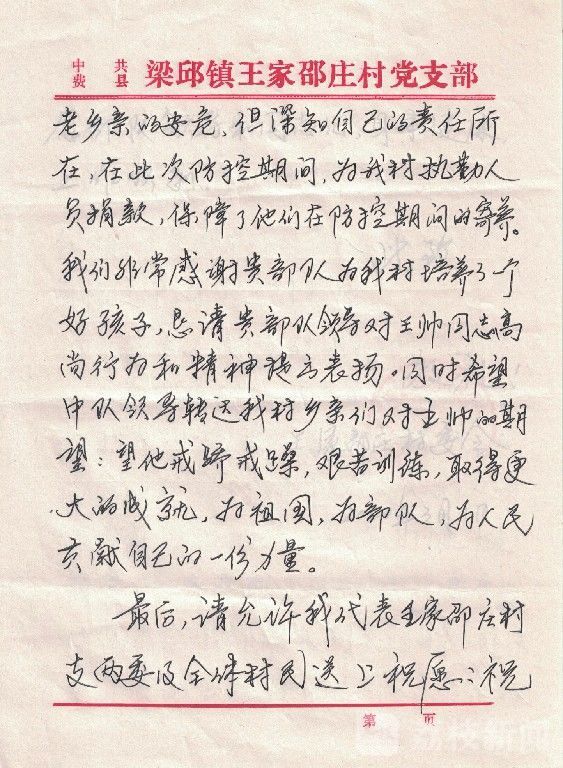 中共
费县
梁邱镇王家邵庄村党支部
老乡亲的安危,但深知自己的责任所
在,在此次防控期间,为我村执勤人
员捐款,保障了他们在防控期间的营养。
我们非常感谢贵部队为我村培养了个
好孩子,恳请贵部队领导对王帅同志高
尚行为和精神提予表扬。同时希望
中队领导转达我村乡亲们对王帅的期
望:望他戒骄戒躁,艰苦训练,取得更
大的成就,为祖国,为部队,为人民
贡献自己的一份力量。
最后,请允许我代表王家邵庄村
支两委及全体村民送上祝愿:祝
第 页
荔枝新闻